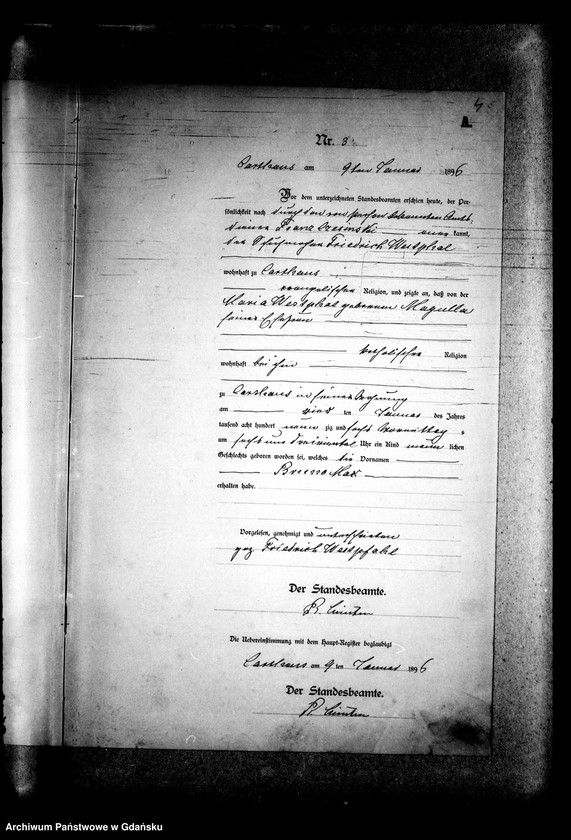 A.
Nr. 3
Carthaus am 9ten Januar 1896
Vor dem unterzeichneten Standesbeamten erschien heute, der Per-
sönlichkeit nach durch den von Person bekannten Amts-
diener Franz kannt,
der Friedrich Westphal
wohnhaft zu Carthaus
evangelischer Religion, und zeigte an, daß von der
Maria Westphal geborenen Magulla
seiner Ehefrau
katholischer Religion
wohnhaft bei ihm
zu Carthaus in seiner Wohnung
am vier ten Januar des Jahres
tausend acht hundert neun zig und sechs Vormittag s
um sechs und dreiviertel Uhr ein Kind männ lichen
Geschlechts geboren worden sei, welches die Vornamen
Bruno Max
erhalten habe.
Vorgelesen, genehmigt und unterschrieben
gez. Friedrich Westphahl
Der Standesbeamte.
Die Uebereinstimmung mit dem Haupt-Register beglaubigt
Carthaus am 9 ten Januar 1896
Der Standesbeamte.
Archiwum Państwowe w Gdańsku